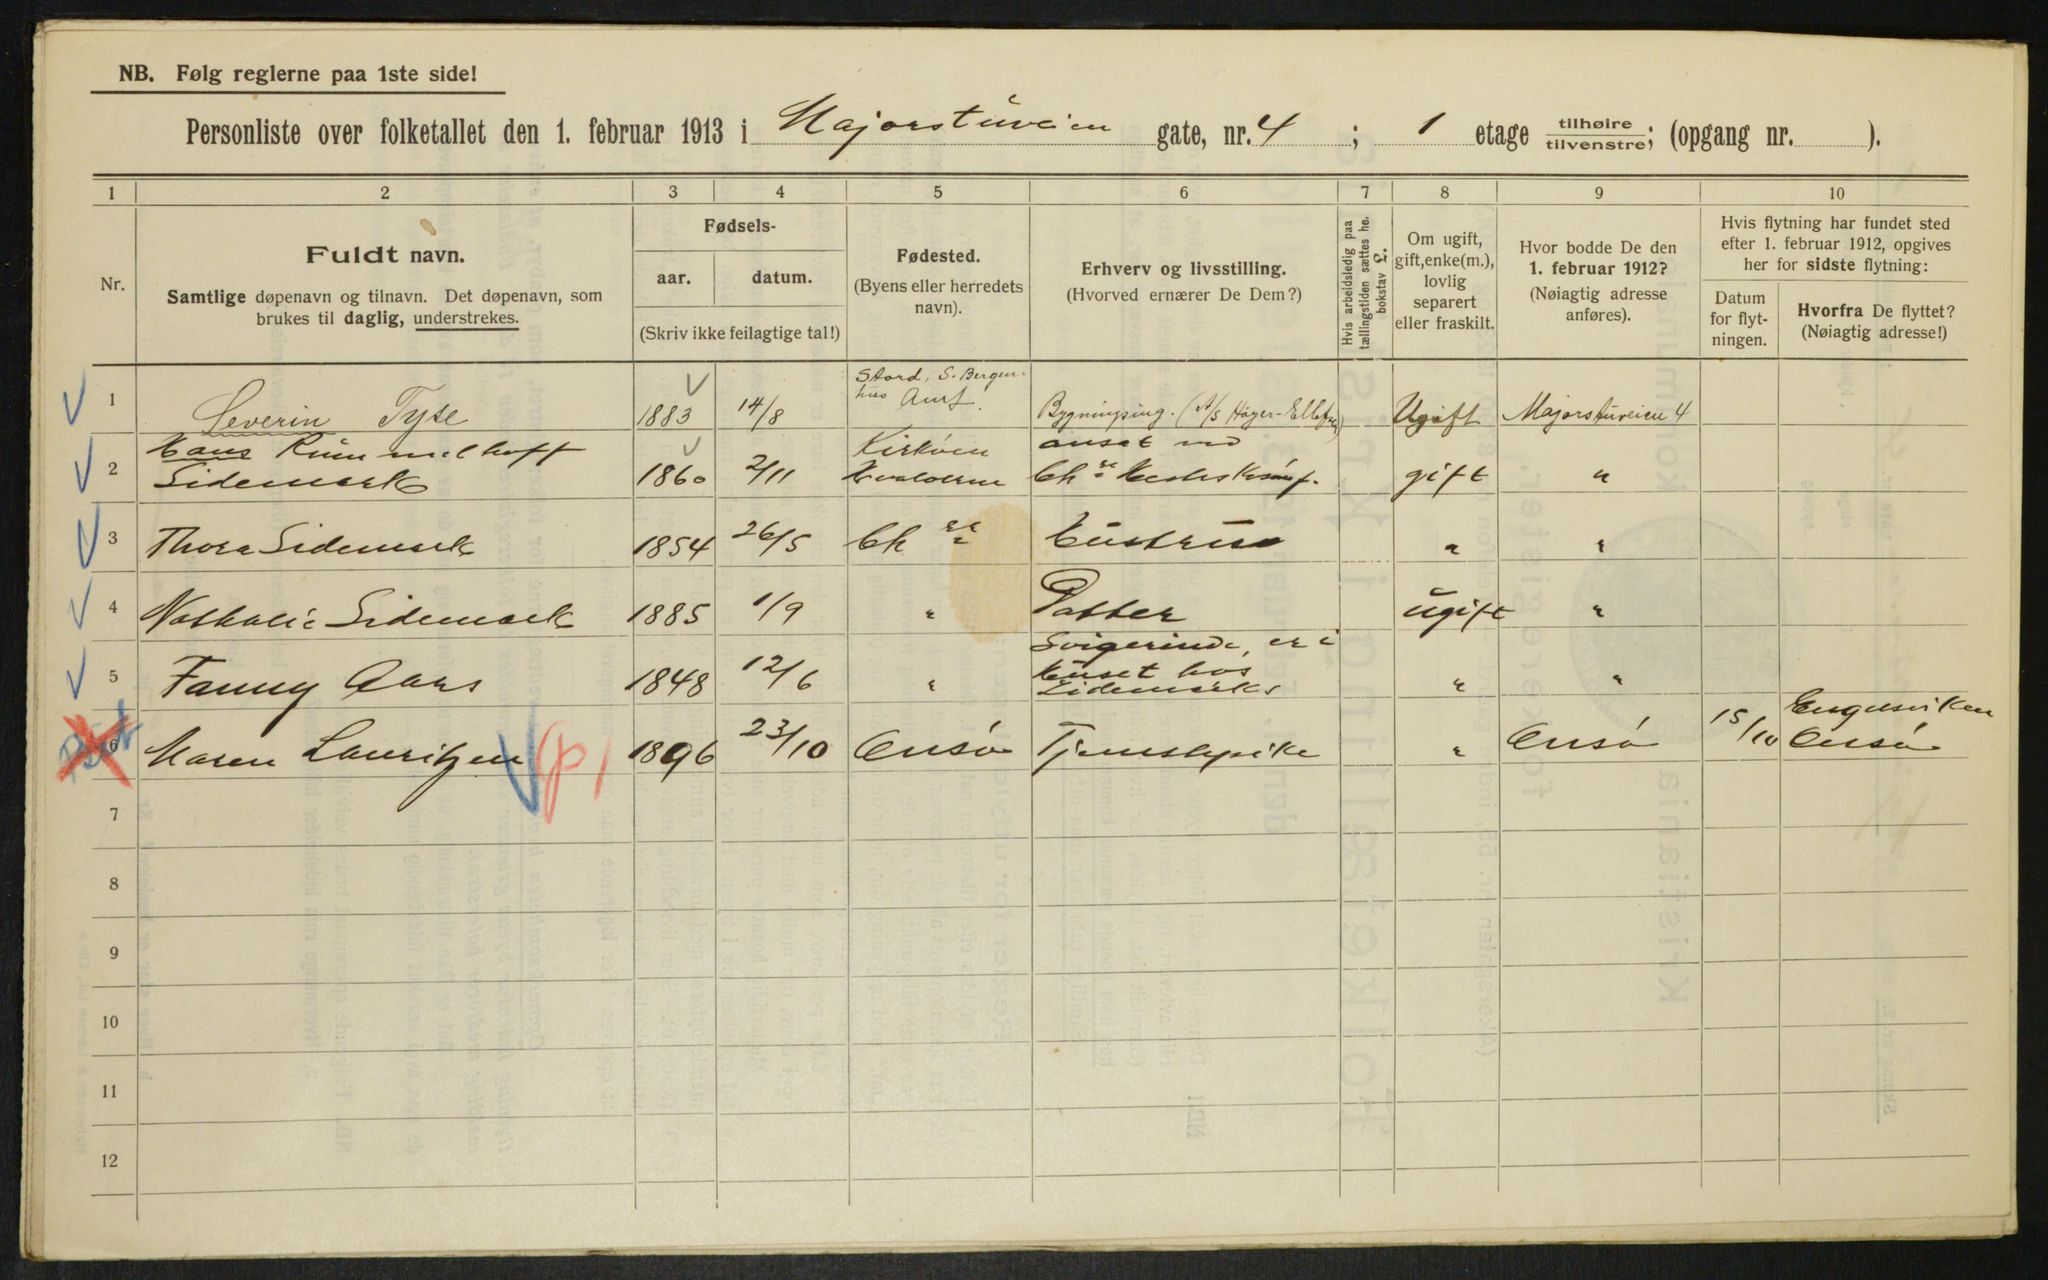 NB. Følg reglerne paa 1ste side!
Personliste over folketallet den 1. februar 1913 i Majorstuveien gate, nr. 4 ; 1 etage tilhøire tilvenstre; (opgang nr. ).
1 2 3 4 5 6 7 8 9 10
Nr.
Fuldt navn.
Samtlige døpenavn og tilnavn. Det døpenavn, som
brukes til daglig, understrekes.
Fødsels-
aar. datum.
(Skriv ikke feilagtige tal!)
Fødested.
(Byens eller herredets
navn).
Erhverv og livsstilling.
(Hvorved ernærer De Dem?)
Hvis arbeidsledig paa
tællingstiden sættes he.
bokstav £.
Om ugift,
gift, enke(m.),
lovlig
separert
eller fraskilt.
Hvor bodde De den
1. februar 1912?
(Nøiagtig adresse
anføres).
Hvis flytning har fundet sted
efter 1. februar 1912, opgives
her for sidste flytning:
Datum
for flyt-
ningen.
Hvorfra De flyttet?
(Nøiagtig adresse!)
Stord, S. Bergen-
hus Amt.
1 Severin Tyse 1883 14/8 Bygningsing. (A/S Høyer-Ellefsen) Ugift Majorstuveien 4
Hans Rummelhoff Kirkøen ansat ved
2 Sidemark 1860 2/11 Hvaløerne gift "
3 Thora Sidemark 1854 26/5 Kra Hustru " "
4 Nathalie Sidemark 1885 1/9 " Datter ugift "
Svigerinde, er i
5 Fanny Aars 1848 12/6 " huset hos " "
Sidemarks
Engelsviken
6 Maren Lauritzen 1896 23/10 Onsø Tjenstepike " Onsø 15/10 Onsø
7
8
9
10
11
12